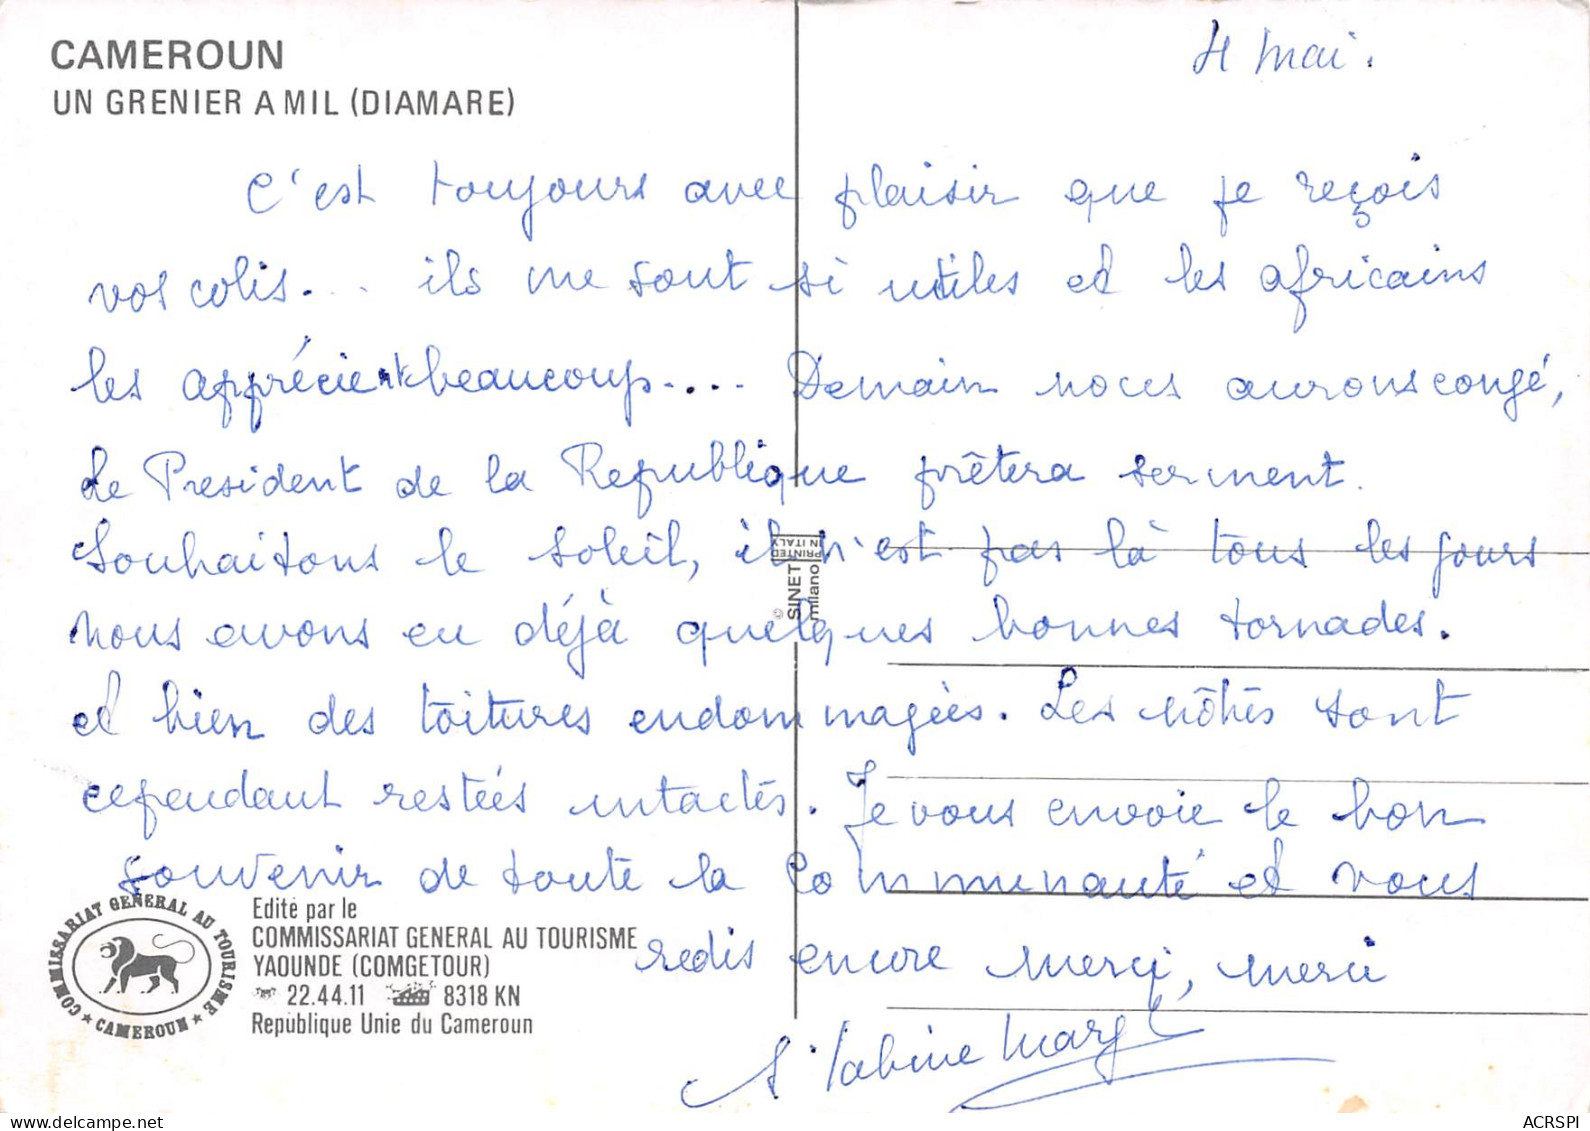 CAMEROUN
UN GRENIER A MIL (DIAMARE)
4 mai.
C'est toujours avec plaisir que je reçois
vos colis... ils me sont si utiles et les africains
les apprécient beaucoup.... Demain nous aurons congé,
Le President de la Republique prêtera serment.
Souhaitons le soleil, il n'est pas là tous les jours
nous avons eu déjà quelques bonnes tornades.
et bien des toitures endommagées. Les nôtres sont
cependant restées intactes. Je vous envoie le bon
souvenir de toute la Communauté et vous
redis encore merci, merci
PRINTED IN ITALY
© SINET
milano
COMMISSARIAT GENERAL AU TOURISME
★ CAMEROUN ★
Edité par le
COMMISSARIAT GENERAL AU TOURISME
YAOUNDE (COMGETOUR)
22.44.11 8318 KN
Republique Unie du Cameroun
delcampe.net
ACRSPI